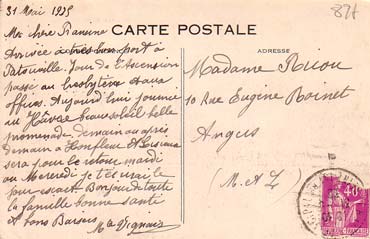 31 Mai 1935
CARTE POSTALE
837
Ma chère
Arrivée à très bon port à
Jour de l'Ascension
passé au presbytère deux
offices. Aujourd'hui journée
au Hâvre beau soleil belle
promenade demain ou après
demain à Honfleur
sera pour le retour mardi
ou Mercredi je t'écrirai le
jour exact Bonjour de toute
la famille bonne santé
et bons Baisers
ADRESSE
Madame
10 Rue Eugène Boinet
Angers
(M. et L)
40c